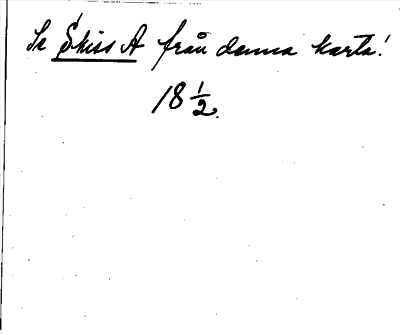 Se Skiss A från denna karta!
18 1/2.